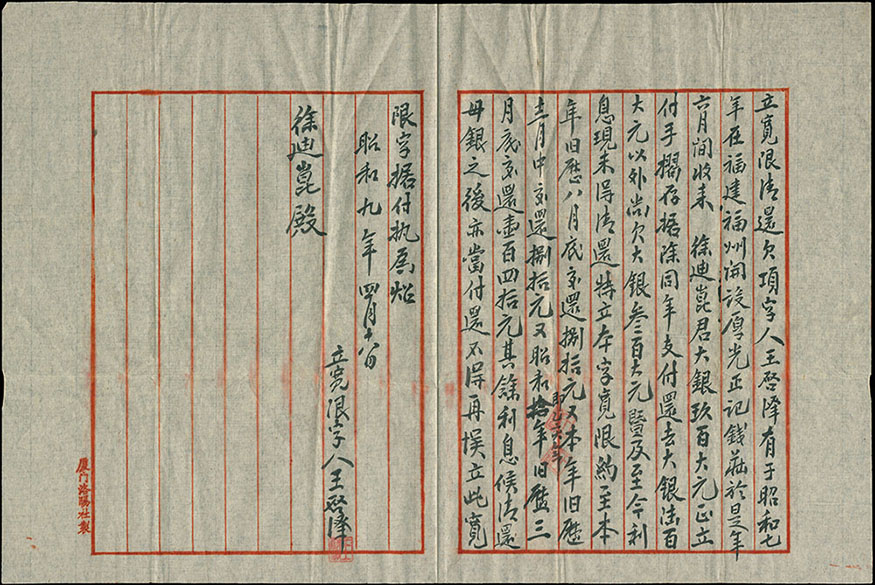 立寬限清還欠項字人王啓澤有于昭和七
年在福建福州開設厚光正記錢莊於是年
六月間收来 徐迪崑君大銀玖百大元正立
付手摺存據除同年支付還去大銀陆百
大元以外尚欠大銀叁百大元暨及至今利
息現未得清還特立本字寬限約至本
年旧曆八月底交還捌拾元又本年旧曆
十二月中交還捌拾元又昭和拾年旧曆三
月底交還壹百四拾元其餘利息候清還
母銀之後亦當付還不得再悮立此寬
限字據付执為炤
昭和九年四月十八日
立寬限字人王啓澤
徐迪崑殿
厦门洛陽社製